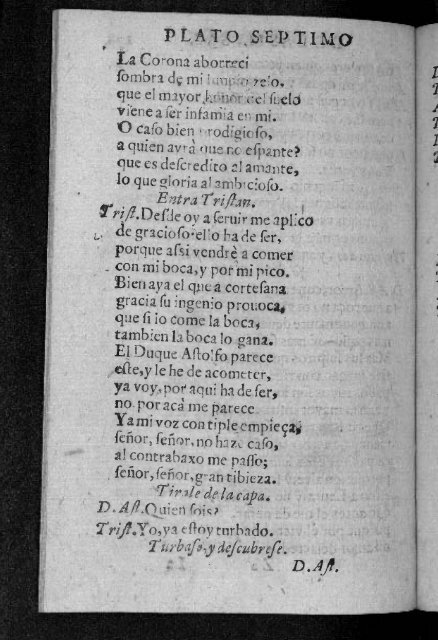 PLATO SEPTIMO
La Corona aborreci
sombra de mi zelo.
que el mayor honor del ſuelo
viene a ſer infamia en mi.
O caſo bien prodigioſo,
a quien avrà que no eſpante?
que es deſcredito al amante,
lo que gloria al ambicioſo.
Entra Triſtan.
Triſt. Deſde oy a ſeruir me aplico
de gracioſo: ello ha de ſer,
porque aſsi vendrè a comer
con mi boca, y por mi pico.
Bien aya el que a corteſana
gracia ſu ingenio prouoca,
que ſi lo come la boca,
tambien la boca lo gana.
El Duque Aſtolfo parece
eſte, y le he de acometer,
ya voy, por aqui ha de ſer,
no, por acà me parece
Ya mi voz con tiple empieça,
ſeñor, ſeñor, no haze caſo,
al contrabaxo me paſſo;
ſeñor, ſeñor, gran tibieza.
Tirale de la capa.
D. Aſt. Quien ſois?
Triſt. Yo, ya eſtoy turbado.
Turbaſe, y deſcubreſe.
D. Aſt.